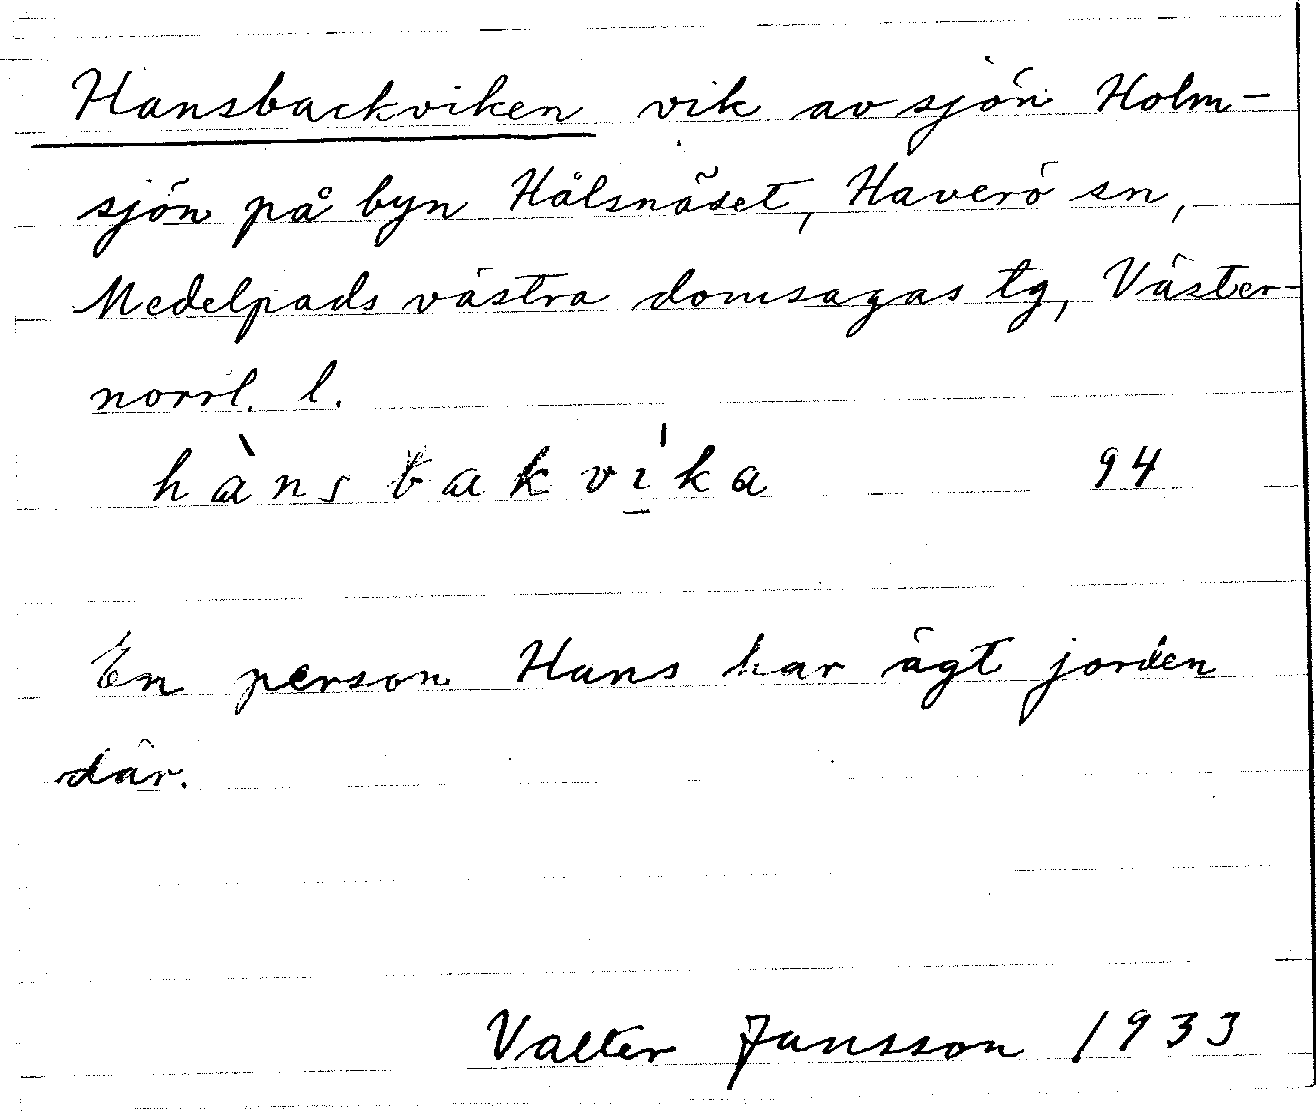 Hansbackviken vik av sjön Holm-
sjön på byn Hålsnäset, Haverö sn,
Medelpads västra domsagas tg, Väster-
norrl. l.
hànsbakvı̍ka 94
En person Hans har ägt jorden
där.
Valter Jansson 1933